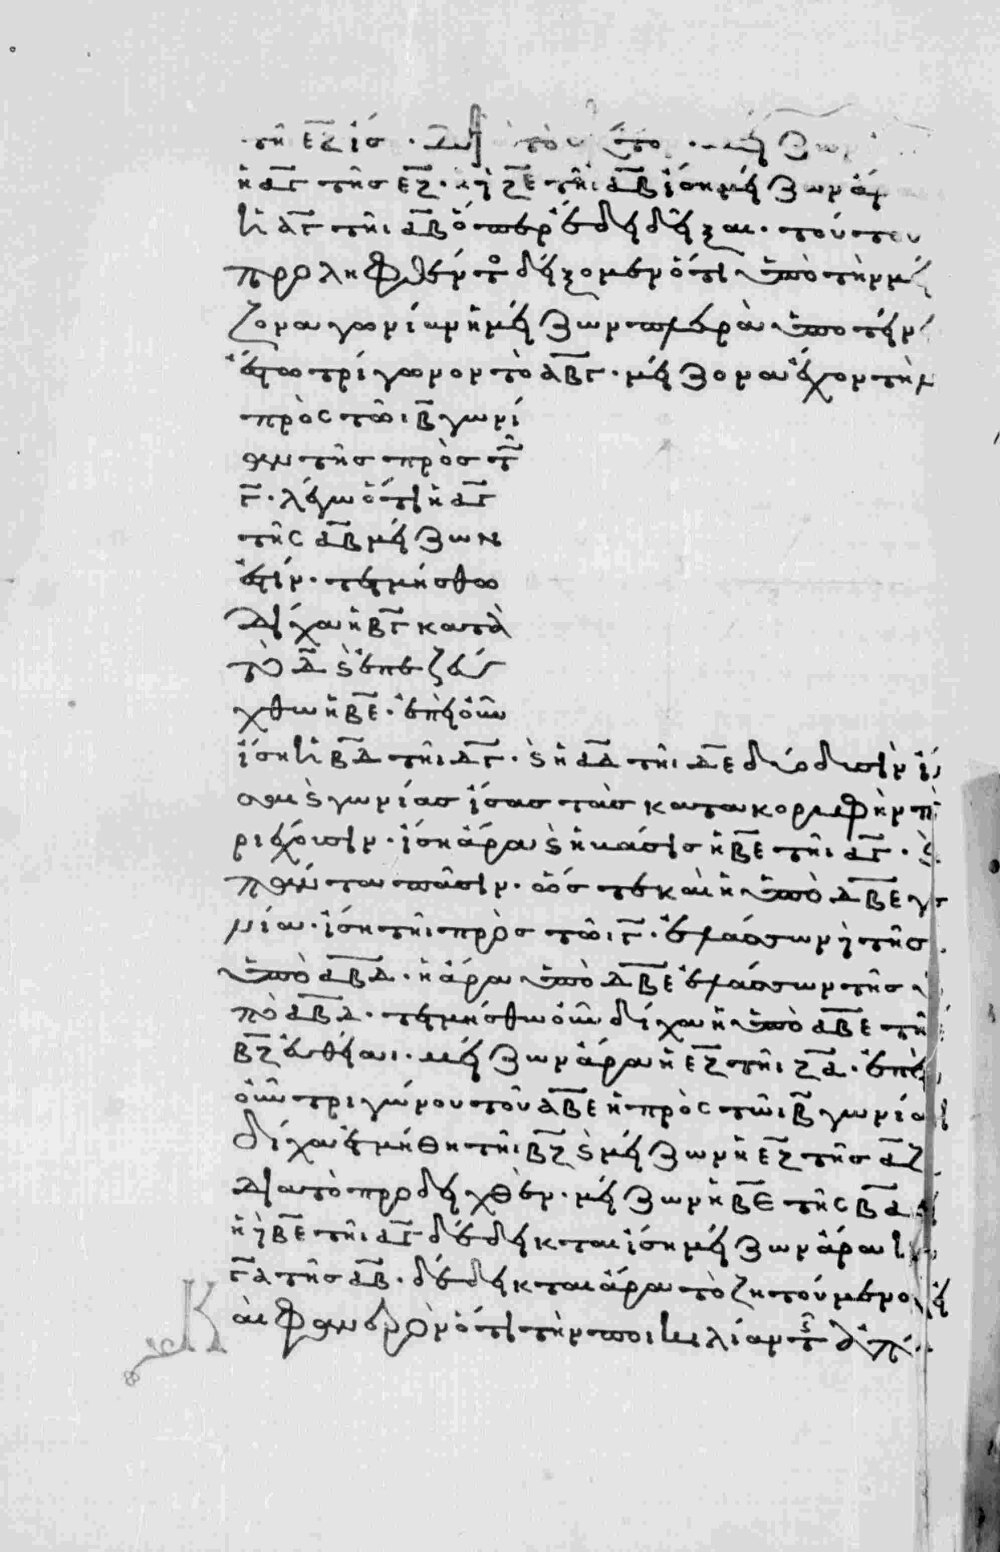 τῆι ΕΖ ἴσ . διὰ τοῦτο . μείζων
ἡ ΑΓ τῆς ΕΖ . καὶ ἡ ΖΕ τῆι ΑΒ ἴση μείζων ἄρ
ἡ ΑΓ τῆι ΑΒ ὅπερ ἔδει δεῖξαι . τούτου
προληφθέντος δείξομεν ὅτι ὑπὸ τὴν μεί
ζονα γωνίαν ἡ μείζων πλευρὰ ὑποτείν
ἔστω τρίγωνον τὸ ΑΒΓ . μείζονα ἔχον τὴν
πρὸς τῶι Β γωνί
αν τῆς πρὸς τῶ
Γ . λέγω ὅτι ἡ ΑΓ
τῆς ΑΒ μείζων
ἐστίν . τετμήσθω
δίχα ἡ ΒΓ κατὰ
τὸ Δ καὶ ἐπεζεύ
χθω ἡ ΒΕ . ἐπεὶ οὖν
ἴση ἡ ΒΔ τῆι ΔΓ . καὶ ἡ ΑΔ τῆι ΔΕ δύο δυσὶν ἴ
σαι καὶ γωνίας ἴσας τὰς κατὰ κορυφὴν π
ριέχουσιν . ἴση ἄρα καὶ ἡ βάσις ἡ ΒΕ τῆι ΑΓ . καὶ
πάντα πᾶσιν . ὥστε καὶ ἡ ὑπὸ ΔΒΕ γω
νία . ἴση τῆι πρὸς τῶι Γ . ἐλάσσων ἡ τῆς
ὑπὸ ΑΒΔ . ἡ ἄρα ὑπὸ ΔΒΕ ἐλάσσων τῆς ὑ
πὸ ΑΒΔ . τετμήσθω οὖν δίχα ἡ ὑπὸ ΑΒΕ τῆ
ΒΖ εὐθείαι . μείζων ἄρα ἡ ΕΖ τῆι ΖΑ . ἐπεὶ
οὖν τριγώνου τοῦ ΑΒΕ ἡ πρὸς τῶι Β γωνία
δίχα ἐτμήθη τῆι ΒΖ καὶ μείζων ἡ ΕΖ τῆς ΑΖ
διὰ τὸ προδειχθέν . μείζων ἡ ΒΕ τῆς ΒΑ
ἡ ΒΕ τῆι ΑΓ δέδεικται ἴση μείζων ἄρα ἡ
ΓΑ τῆς ΑΒ . δέδεικται ἄρα τὸ ζητούμενον
Καὶ φανερὸν ὅτι τὴν ποικιλίαν τ